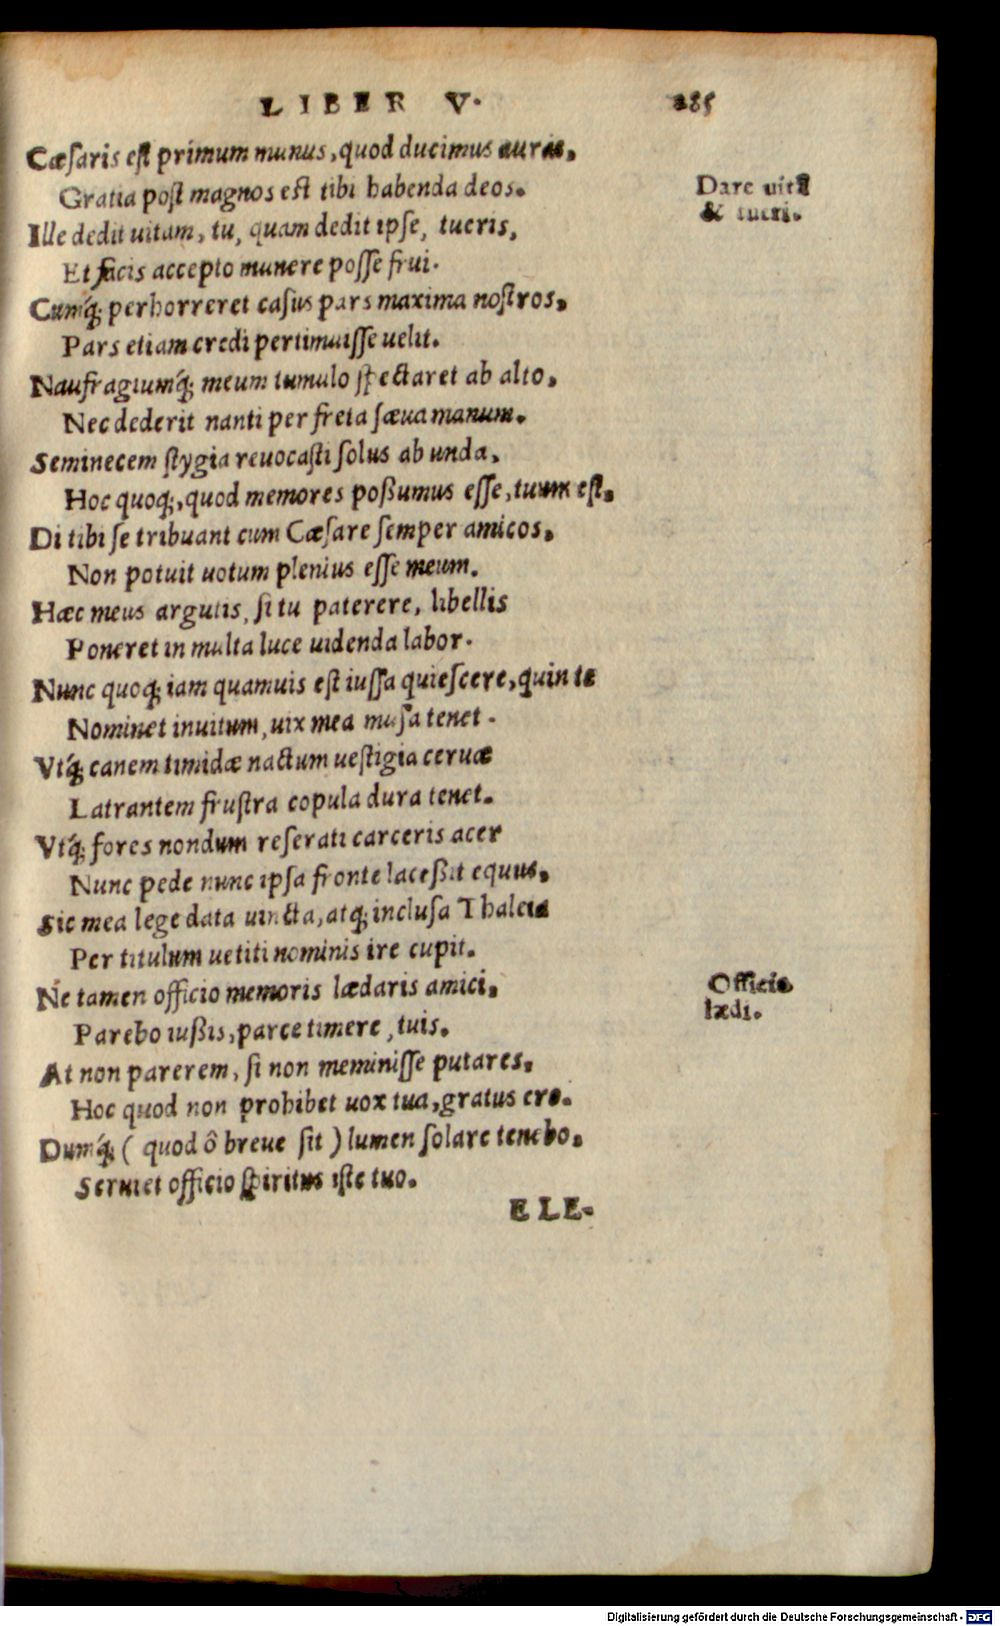 LIBER V.
285
Cæsaris est primum munus, quod ducimus auras,
Gratia post magnos est tibi habenda deos.
Ille dedit uitam, tu, quam dedit ipse, tueris,
Et facis accepto munere posse frui.
Cumq́; perhorreret casus pars maxima nostros,
Pars etiam credi pertimuisse uelit.
Naufragiumq́; meum tumulo spectaret ab alto,
Nec dederit nanti per freta sæua manum.
Seminecem stygia reuocasti solus ab unda,
Hoc quoq;, quod memores poßumus esse, tuum est.
Di tibi se tribuant cum Cæsare semper amicos,
Non potuit uotum plenius esse meum.
Hæc meus argutis, si tu paterere, libellis
Poneret in multa luce uidenda labor.
Nunc quoq; iam quamuis est iussa quiescere, quin te
Nominet inuitum, uix mea musa tenet.
Vtq́; canem timidæ nactum uestigia ceruæ
Latrantem frustra copula dura tenet.
Vtq́; fores nondum reserati carceris acer
Nunc pede nunc ipsa fronte laceßit equus,
Sic mea lege data uincta, atq; inclusa Thaleia
Per titulum uetiti nominis ire cupit.
Ne tamen officio memoris lædaris amici,
Parebo iußis, parce timere, tuis.
At non parerem, si non meminisse putares,
Hoc quod non prohibet uox tua, gratus ero.
Dumq́; (quod ô breue sit) lumen solare tenebo,
Seruiet officio spiritus iste tuo.
ELE-
Dare uitā
& tueri.
Officio
lædi.
Digitalisierung gefördert durch die Deutsche Forschungsgemeinschaft - DFG